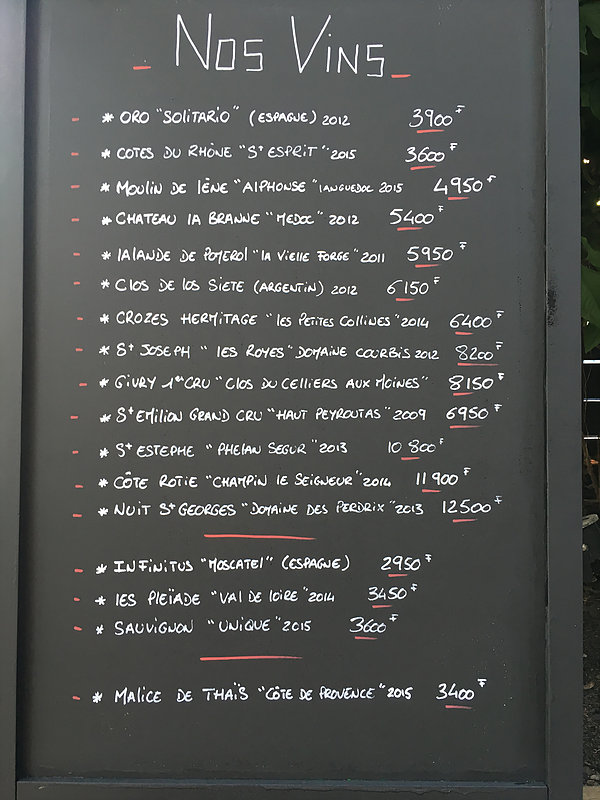 Nos Vins
- * ORO "Solitario" (ESPAGNE) 2012 3900 F
- * COTES DU RHÔNE "St ESPRIT" 2015 3600 F
- * MOULIN DE LÈNE "ALPHONSE" LANGUEDOC 2015 4950 F
- * CHATEAU LA BRANNE "MEDOC" 2012 5400 F
- * LALANDE DE POMEROL "LA VIELLE FORGE" 2011 5950 F
- * CLOS DE LOS SIETE (ARGENTIN) 2012 6150 F
- * CROZES HERMITAGE "LES PETITES COLLINES" 2014 6400 F
- * St JOSEPH "LES ROYES" DOMAINE COURBIS 2012 8200 F
- * GIVRY 1er CRU "CLOS DU CELLIERS AUX MOINES" 8150 F
- * St EMILION GRAND CRU "HAUT PEYROUTAS" 2009 6950 F
- * St ESTEPHE "PHELAN SEGUR" 2013 10 800 F
- * CÔTE ROTIE "CHAMPIN LE SEIGNEUR" 2014 11 900 F
- * NUIT St GEORGES "DOMAINE DES PERDRIX" 2013 12500 F
- * INFINITUS "MOSCATEL" (ESPAGNE) 2950 F
- * LES PLEÏADE "VAL DE LOIRE" 2014 3450 F
- * SAUVIGNON "UNIQUE" 2015 3600 F
- * MALICE DE THAÏS "CÔTE DE PROVENCE" 2015 3400 F